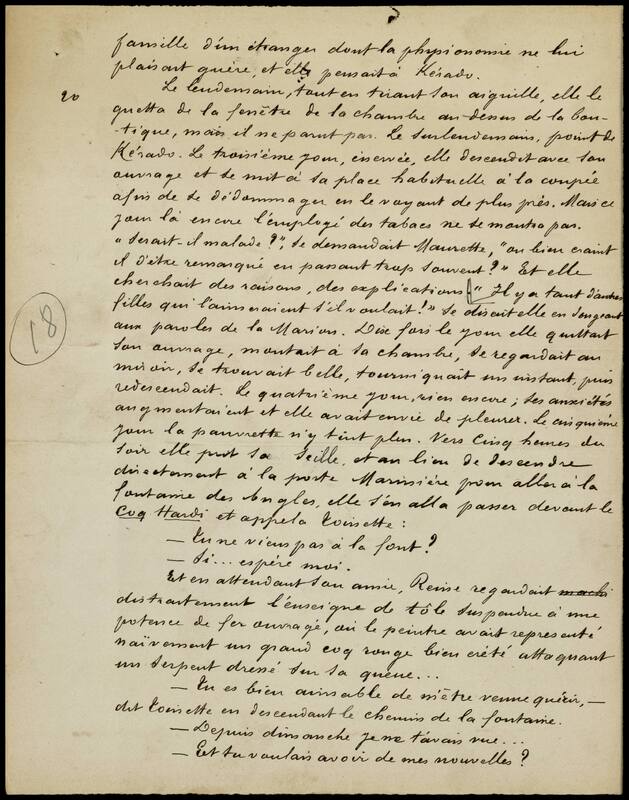 famille d'un étranger dont la physionomie ne lui
plaisait guère, et elle pensait à Kérado.
20
Le lendemain, tout en tirant son aiguille, elle le
guetta de la fenêtre de la chambre au-dessus de la bou-
-tique, mais il ne parut pas. Le surlendemain, point de
Kérado. Le troisième jour, énervée, elle descendit avec son
ouvrage et se mit à sa place habituelle à la coupée
afin de se dédommager en le voyant de plus près. Mais ce
jour là encore l'employé des tabacs ne se montra pas.
"Serait-il malade?", se demandait Maurette, "ou bien craint
il d'être remarqué en passant trop souvent?" Et elle
cherchait des raisons, des explications. "Il y a tant d'autres
filles qui l'aimeraient s'il voulait!" se disait elle en songeant
aux paroles de la Marion. Dix fois le jour elle quittait
18
son ouvrage, montait à sa chambre, se regardait au
miroir, se trouvait belle, tourniquait un instant, puis
redescendait. Le quatrième jour, rien encore; ses anxiétés
augmentaient et elle avait envie de pleurer. Le cinquième
jour la pauvrette n'y tint plus. Vers cinq heures du
soir elle prit sa seille, et au lieu de descendre
directement à la porte Marinière pour aller à la
fontaine des Anglès, elle s'en alla passer devant le
Coq Hardi et appela Toinette:
— Tu ne viens pas à la font?
— Si... espère moi.
Et en attendant son amie, Reine regardait machi
distraitement l'enseigne de tôle suspendue à une
potence de fer ouvragé, où le peintre avait représenté
naïvement un grand coq rouge bien crêté attaquant
un serpent dressé sur sa queue...
— Tu es bien aimable de m'être venue quérir, —
dit Toinette en descendant le chemin de la fontaine.
— Depuis dimanche je ne t'avais vue...
— Et tu voulais avoir de mes nouvelles?